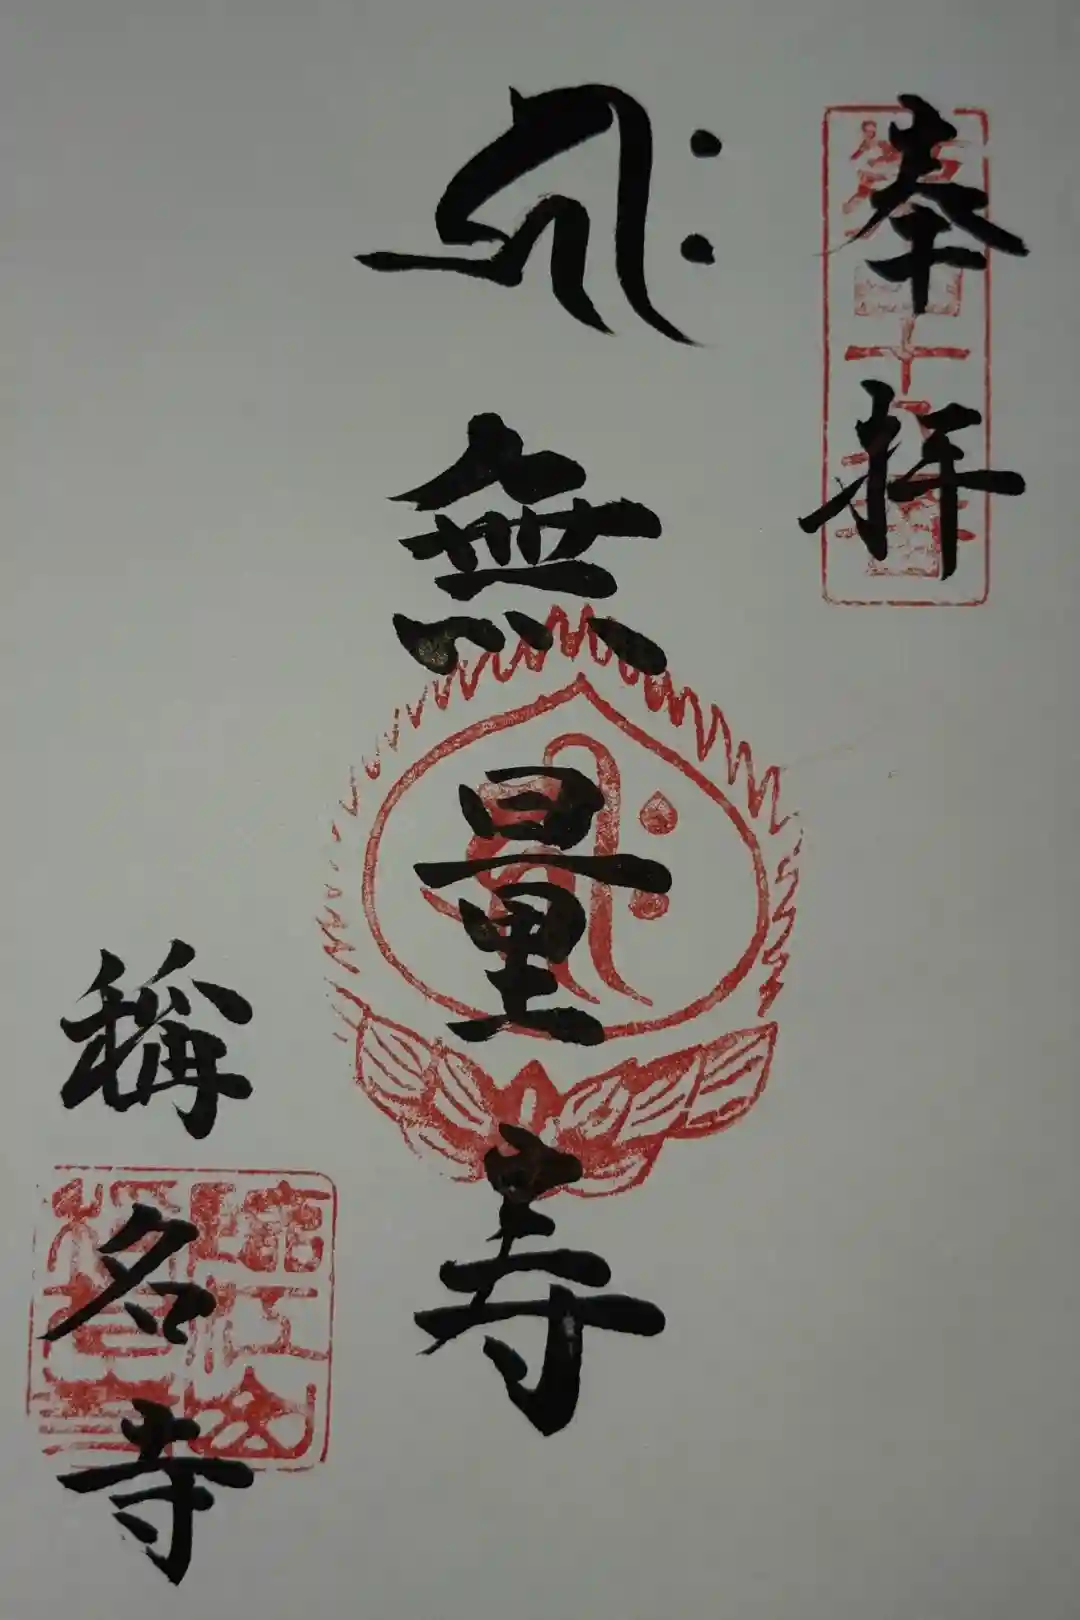 奉拝
𑖮𑖿𑖨𑖱𑖾
無量寿
稱名寺